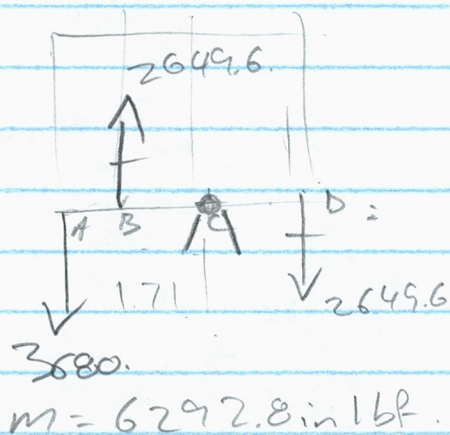 2649.6.
A B C D :
1.71
2649.6
3680.
m = 6292.8 in lbf.